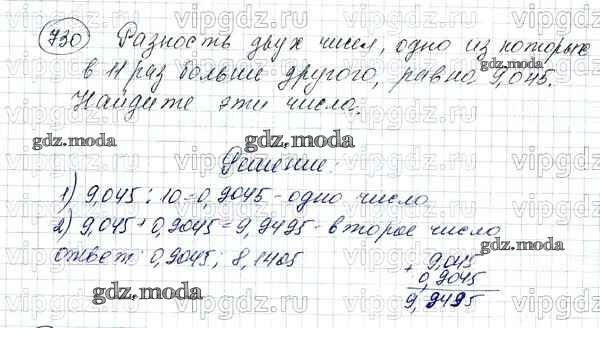 730 Разность двух чисел, одно из которых
в 11 раз больше другого, равна 9,045.
Найдите эти числа.
Решение:
1) 9,045 : 10 = 0,9045 - одно число
2) 9,045 + 0,9045 = 9,9495 - второе число
ответ: 0,9045; 8,1405
9,045
+ 0,9045
9,9495
gdz.moda
gdz.moda
gdz.moda
gdz.moda
gdz.moda
gdz.moda
vipgdz
vipgdz.ru